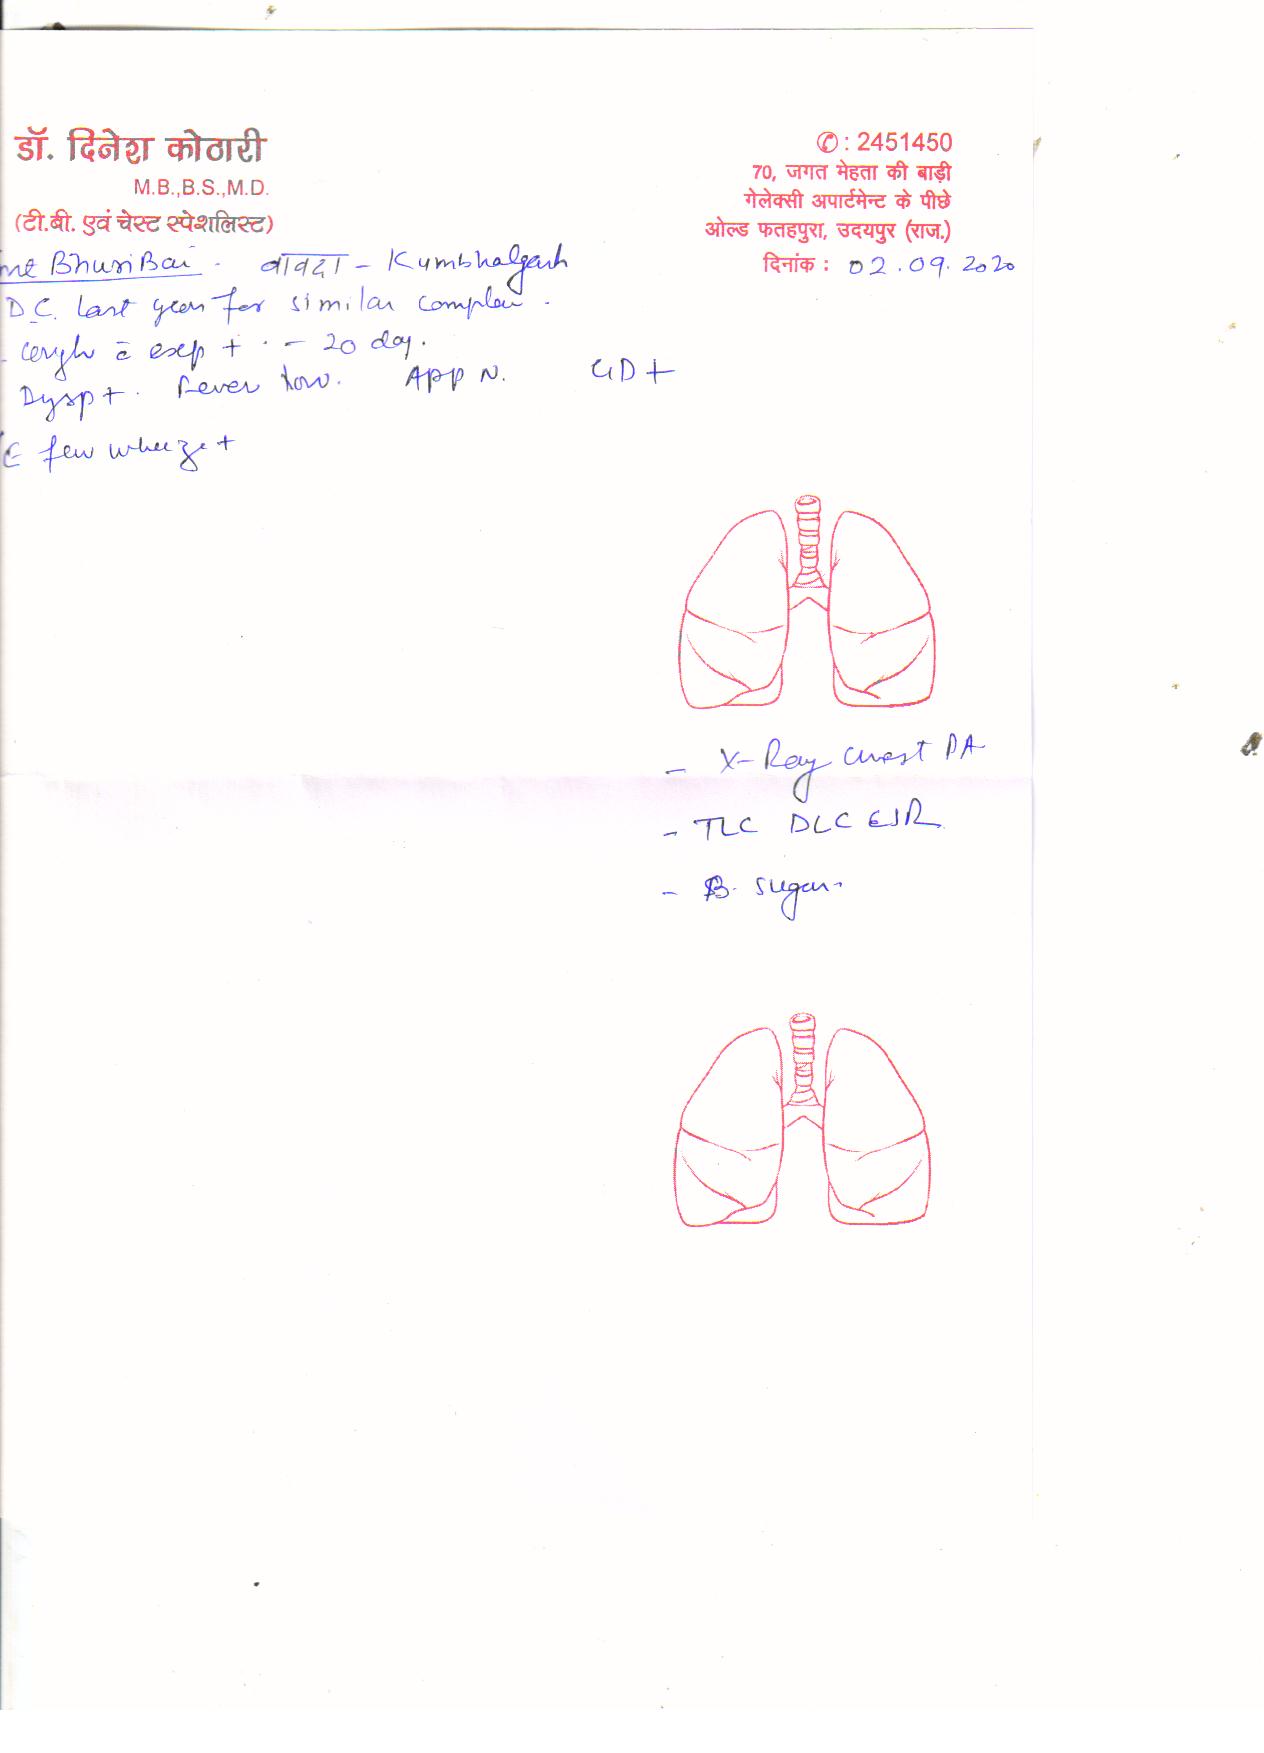 डॉ. दिनेश कोठारी
M.B.,B.S.,M.D.
(टी.बी. एवं चेस्ट स्पेशलिस्ट)
✆: 2451450
70, जगत मेहता की बाड़ी
गेलेक्सी अपार्टमेन्ट के पीछे
ओल्ड फतहपुरा, उदयपुर (राज.)
दिनांक : 02.09.2020
Bhuri Bai - - Kumbhalgarh
D.C. last year for similar
- cough c̄ exp + - 20 day.
Dysp +. Fever low. App N. GD +
few wheeze +
- X-Ray chest PA
- TLC DLC ESR
- B. Sugar